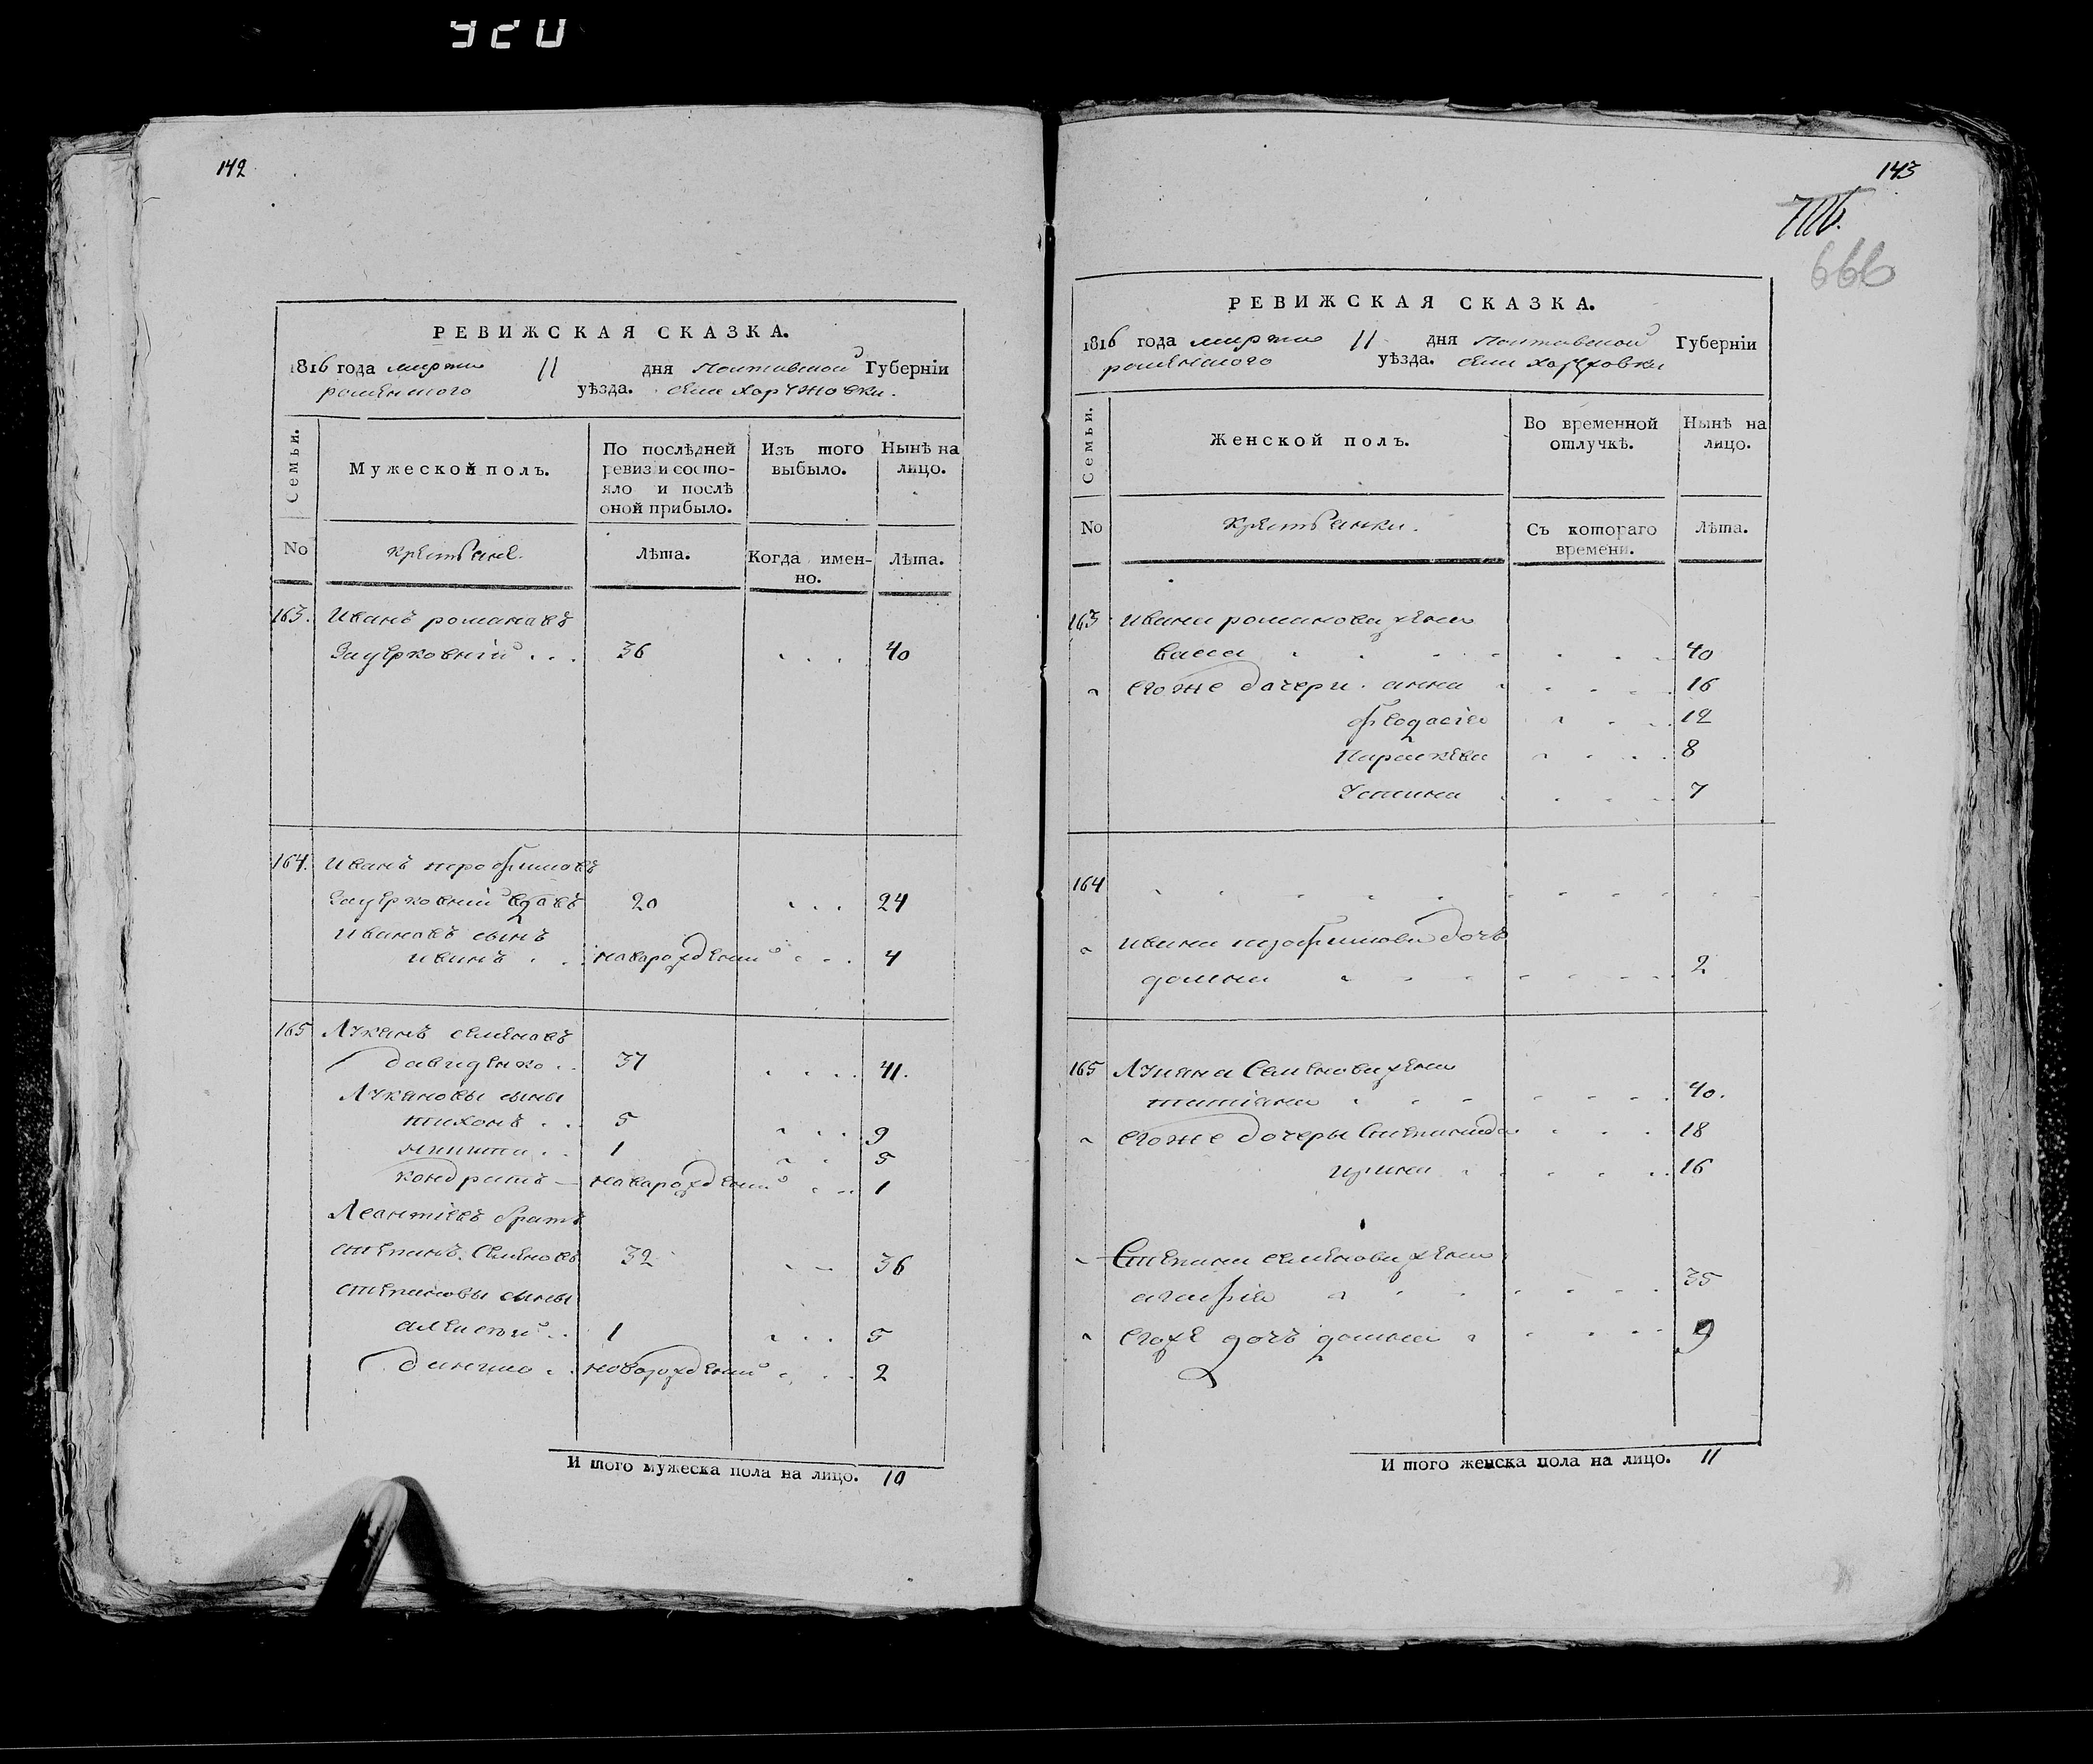 920
142
РЕВИЖСКАЯ СКАЗКА.
1816 года марта 11 дня Полтавской Губерніи
роменского уѣзда. села
Семьи.
Мужеской полъ.
По послѣдней ревизіи состояло и послѣ оной прибыло.
Изъ того выбыло.
Нынѣ на лицо.
No
крестьяне.
Лѣта.
Когда имен-
но.
Лѣта.
163. Иванъ романавъ
36 . . . 40
164. Иванъ трофимавъ
вдавъ 20 . . . 24
иванавъ сынъ
иванъ . . наварождений . . . 4
165 Луканъ семенавъ
давиденко . . 37 . . . . 41.
Лукановы сыны
тихонъ . . 5 . . . 9
никита . . 1 . . 5
кондратъ — наварождений . . . 1
братъ
степанъ семеновъ 32 . . 36
степановы сыны
алексей . . 1 . . . 5
данило . . новорождений . . . 2
И того мужеска пола на лицо. 10
143
666
РЕВИЖСКАЯ СКАЗКА.
1816 года марта 11 дня Полтавской Губерніи
роменского уѣзда. села
Семьи.
Женской полъ.
Во временной отлучкѣ.
Нынѣ на лицо.
No
крестьянки.
Съ котораго времени.
Лѣта.
163 ивана романова жена
васса 40
егоже дочери. анна 16
феодасія 12
Параскева 8
Устина 7
164
ивана трофимова дочь
домна 2
165 Лукана Семенова жена
татіана 40.
егоже дочеры Степанида 18
ирина 16
Степана семенова жена
агафія 35
егоже дочь домна 9
И того женска пола на лицо. 11